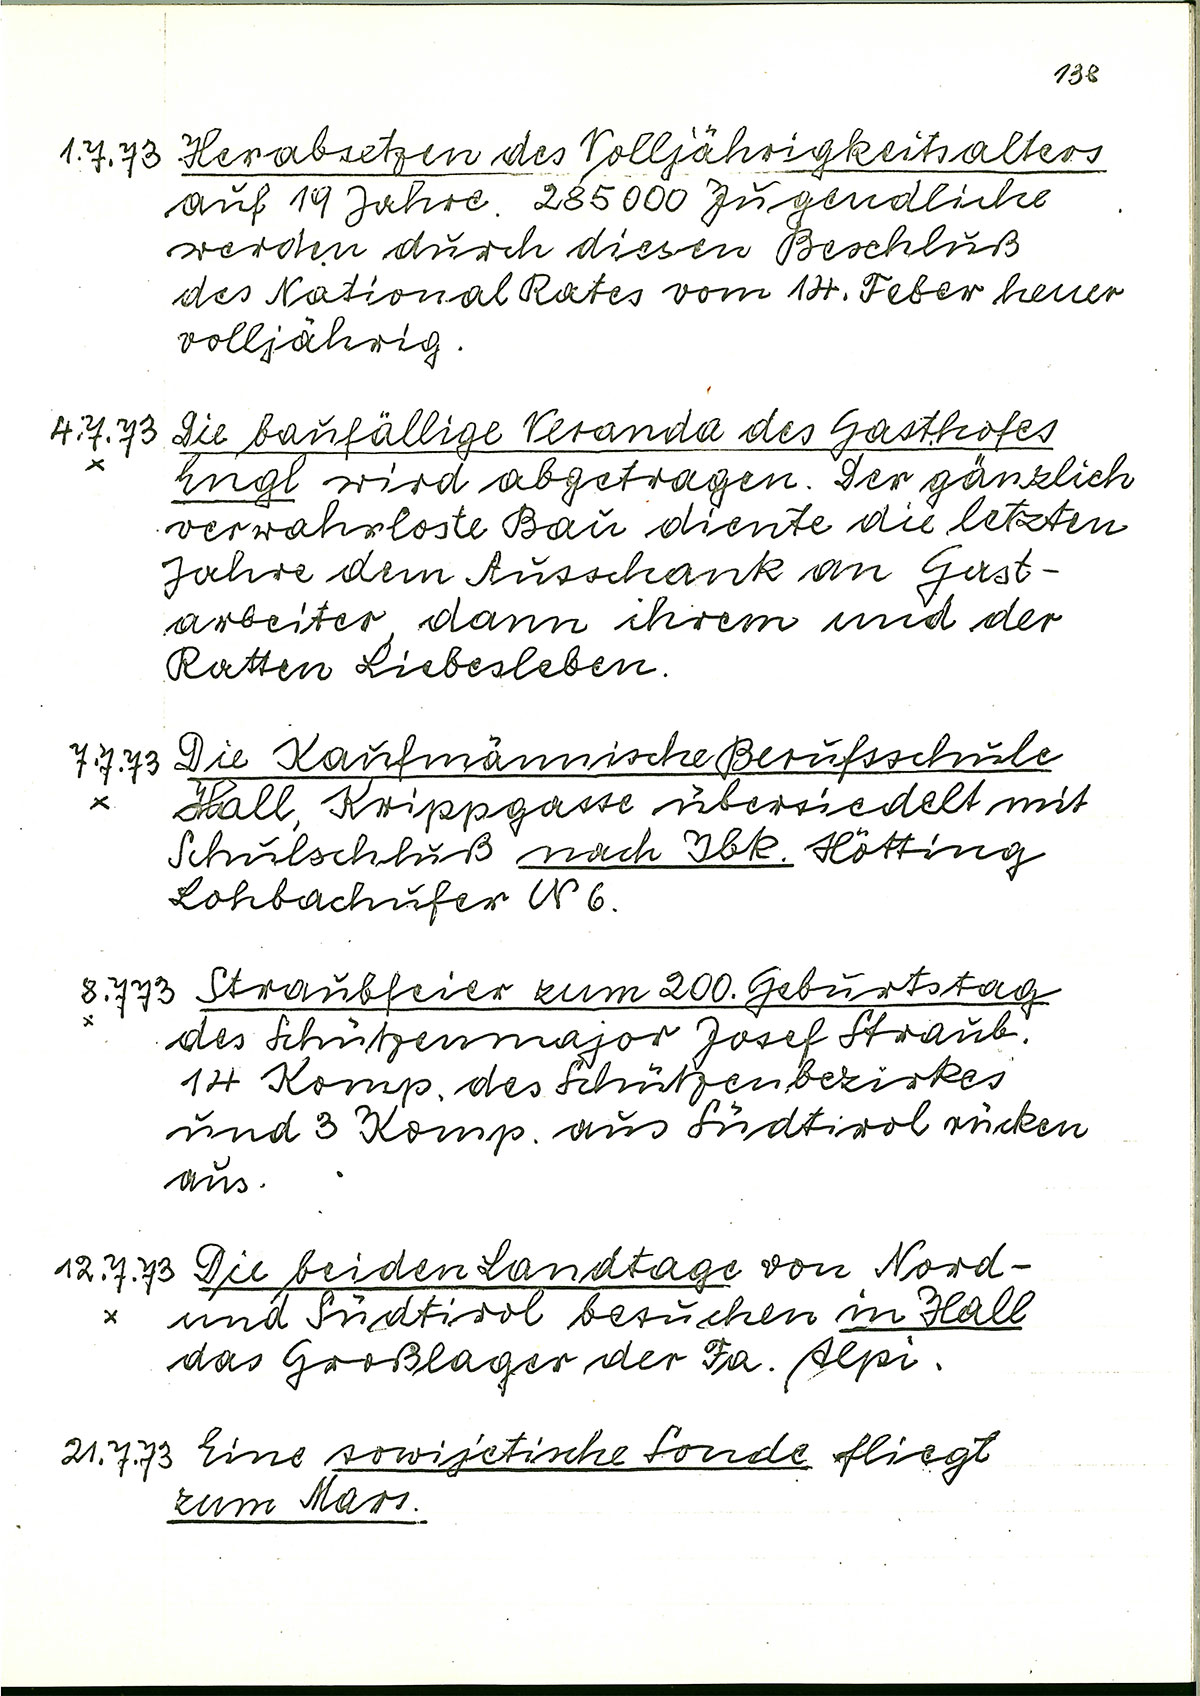 138
1.7.73 Herabsetzen des Volljährigkeitsalters
auf 19 Jahre. 285000 Jugendliche
werden durch diesen Beschluß
des National Rates vom 14. Feber heuer
volljährig.
4.7.73 Die baufällige Veranda des Gasthofes
x Engl wird abgetragen. Der gänzlich
verwahrloste Bau diente die letzten
Jahre dem Ausschank an Gast-
arbeiter, dann ihrem und der
Ratten Liebesleben.
7.7.73 Die Kaufmännische Berufsschule
x Hall, Krippgasse übersiedelt mit
Schulschluß nach Ibk. Hötting
Lohbachufer N 6.
8.773 Straubfeier zum 200. Geburtstag
x des Schützenmajor Josef Straub.
14 Komp. des Schützenbezirkes
und 3 Komp. aus Südtirol rücken
aus.
12.7.73 Die beiden Landtage von Nord-
x und Südtirol besuchen in Hall
das Großlager der Fa. Alpi.
21.7.73 Eine sowijetische Sonde fliegt
zum Mars.